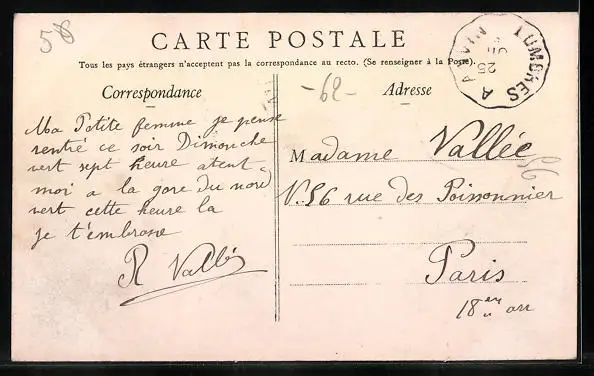 58
CARTE POSTALE
Tous les pays étrangers n'acceptent pas la correspondance au recto. (Se renseigner à la Poste).
Correspondance
-62-
Adresse
Ma Petite femme je pense
rentré ce soir Dimanche
vert sept heure atent
moi a la gare du nord
vert cette heure la
je t'embrasse
R Vallée
Madame Vallée
N. 56 rue des Poissonnier
Paris
18 em arr
LUMBRES A ANVIN
25
56